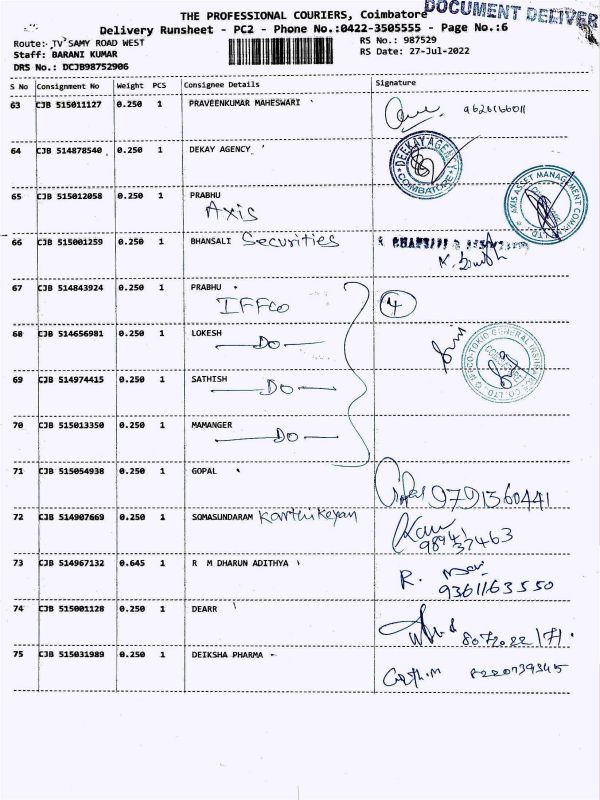 DOCUMENT DELIVER
THE PROFESSIONAL COURIERS, Coimbatore
Delivery Runsheet - PC2 - Phone No.:0422-3505555 - Page No.:6
Route: TV SAMY ROAD WEST RS No.: 987529
Staff: BARANI KUMAR RS Date: 27-Jul-2022
DRS No.: DCJB98752906
S No Consignment No Weight PCS Consignee Details Signature
63 CJB 515011127 0.250 1 PRAVEENKUMAR MAHESWARI
64 CJB 514878540 0.250 1 DEKAY AGENCY
DEEKAY AGENCY COIMBATORE
65 CJB 512012058 0.250 1 PRABHU
Axis
AXIS ASSET MANAGEMENT COMPANY LTD
66 CJB 515001259 0.250 1 BHANSALI Securities
67 CJB 514843924 0.250 1 PRABHU
IFFCO
4
68 CJB 514656981 0.250 1 LOKESH
Do
IFFCO-TOKIO GENERAL INSURANCE CO. LTD.
69 CJB 514974415 0.250 1 SATHISH
Do
70 CJB 515013350 0.250 1 MAMANGER
Do
71 CJB 515054938 0.250 1 GOPAL 9791360441
72 CJB 514907669 0.250 1 SOMASUNDARAM Karthikeyan
98941 37463
73 CJB 514967132 0.645 1 R M DHARUN ADITHYA R.
9361163550
74 CJB 515001128 0.250 1 DEARR
75 CJB 515031989 0.250 1 DEIKSHA PHARMA 8220739345